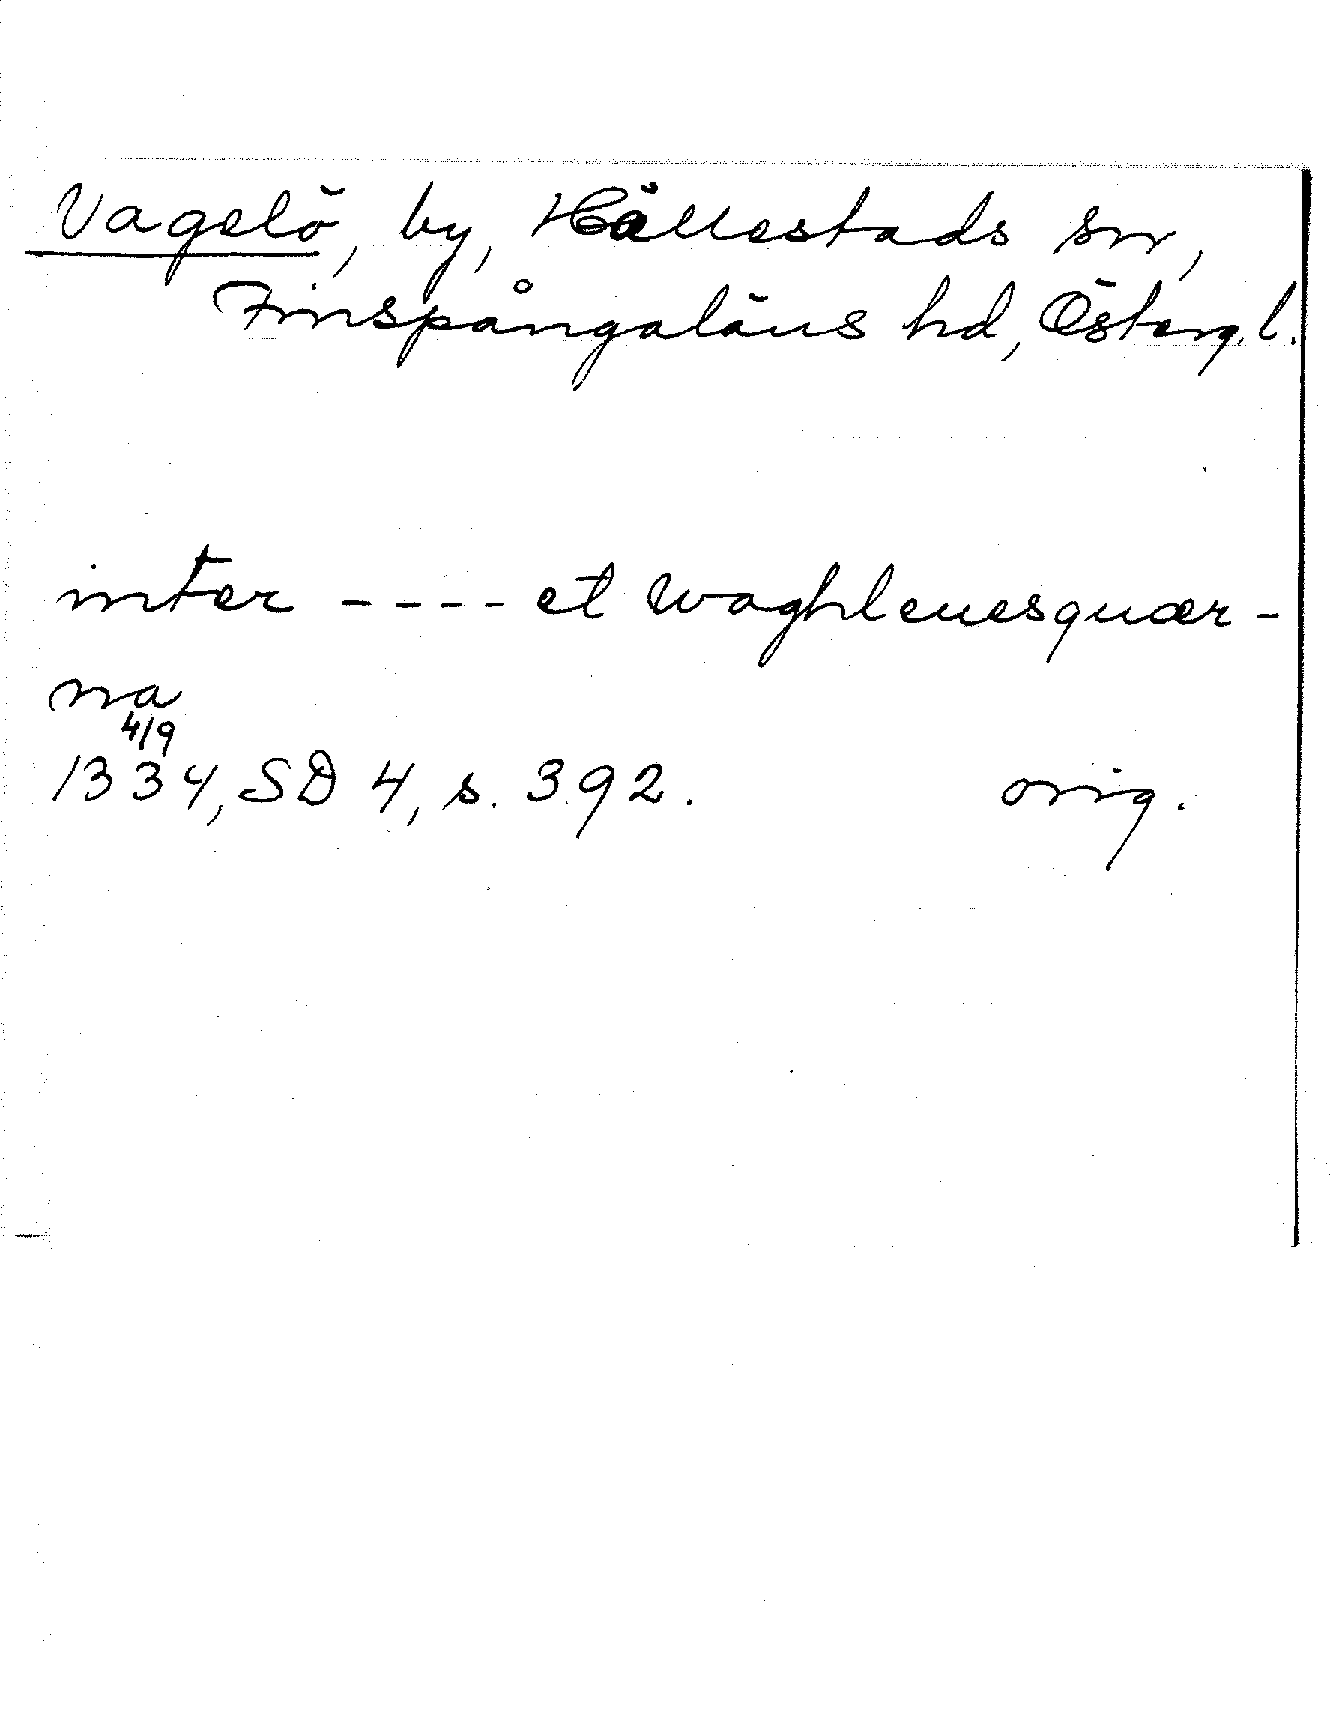 Vagelö, by, Hällestads sn,
Finspångaläns hd, Östergl.
inter ---- et waghleuesquær-
na
4/9
1334, SD 4, s. 392. orig.